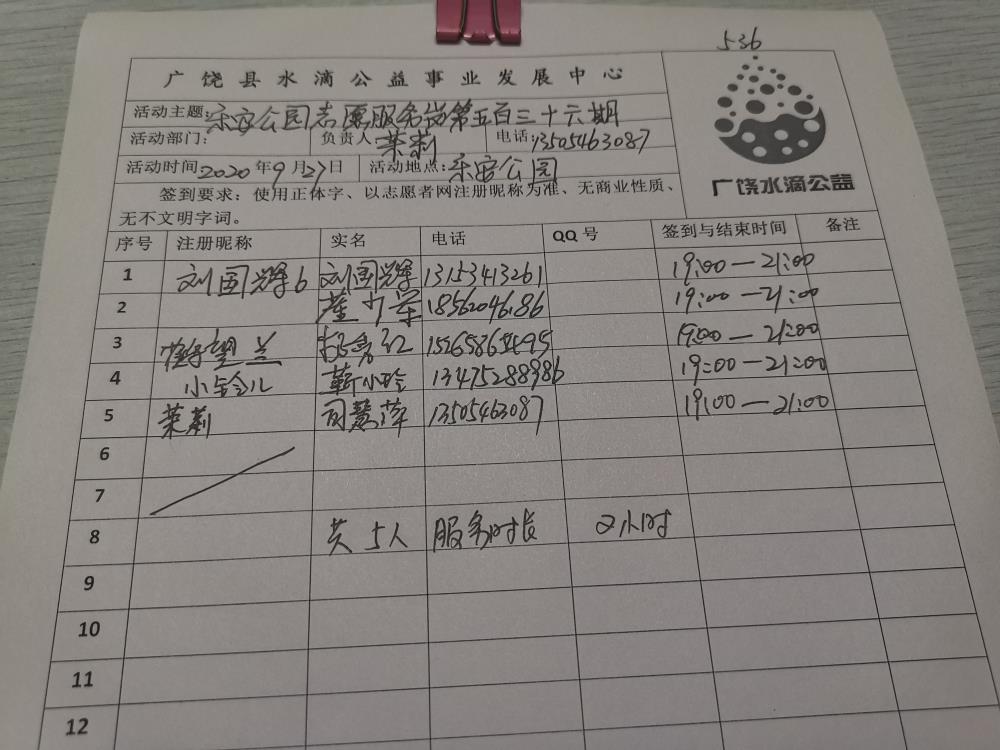 536
广饶县水滴公益事业发展中心
活动主题:乐安公园志愿服务岗第五百三十六期
活动部门: 负责人:茉莉 电话:13505463087
活动时间2020年9月27日 活动地点:乐安公园
广饶水滴公益
签到要求:使用正体字、以志愿者网注册昵称为准、无商业性质、
无不文明字词。
序号 注册昵称 实名 电话 QQ号 签到与结束时间 备注
1 刘国辉6 刘国辉 13153413261 19:00—21:00
2 18562046186 19:00—21:00
3 19:00—21:00
4 小铃儿 靳小玲 13475288986 19:00—21:00
5 茉莉 司慧萍 13505463087 19:00—21:00
6
7
8 共5人 服务时长 2小时
9
10
11
12